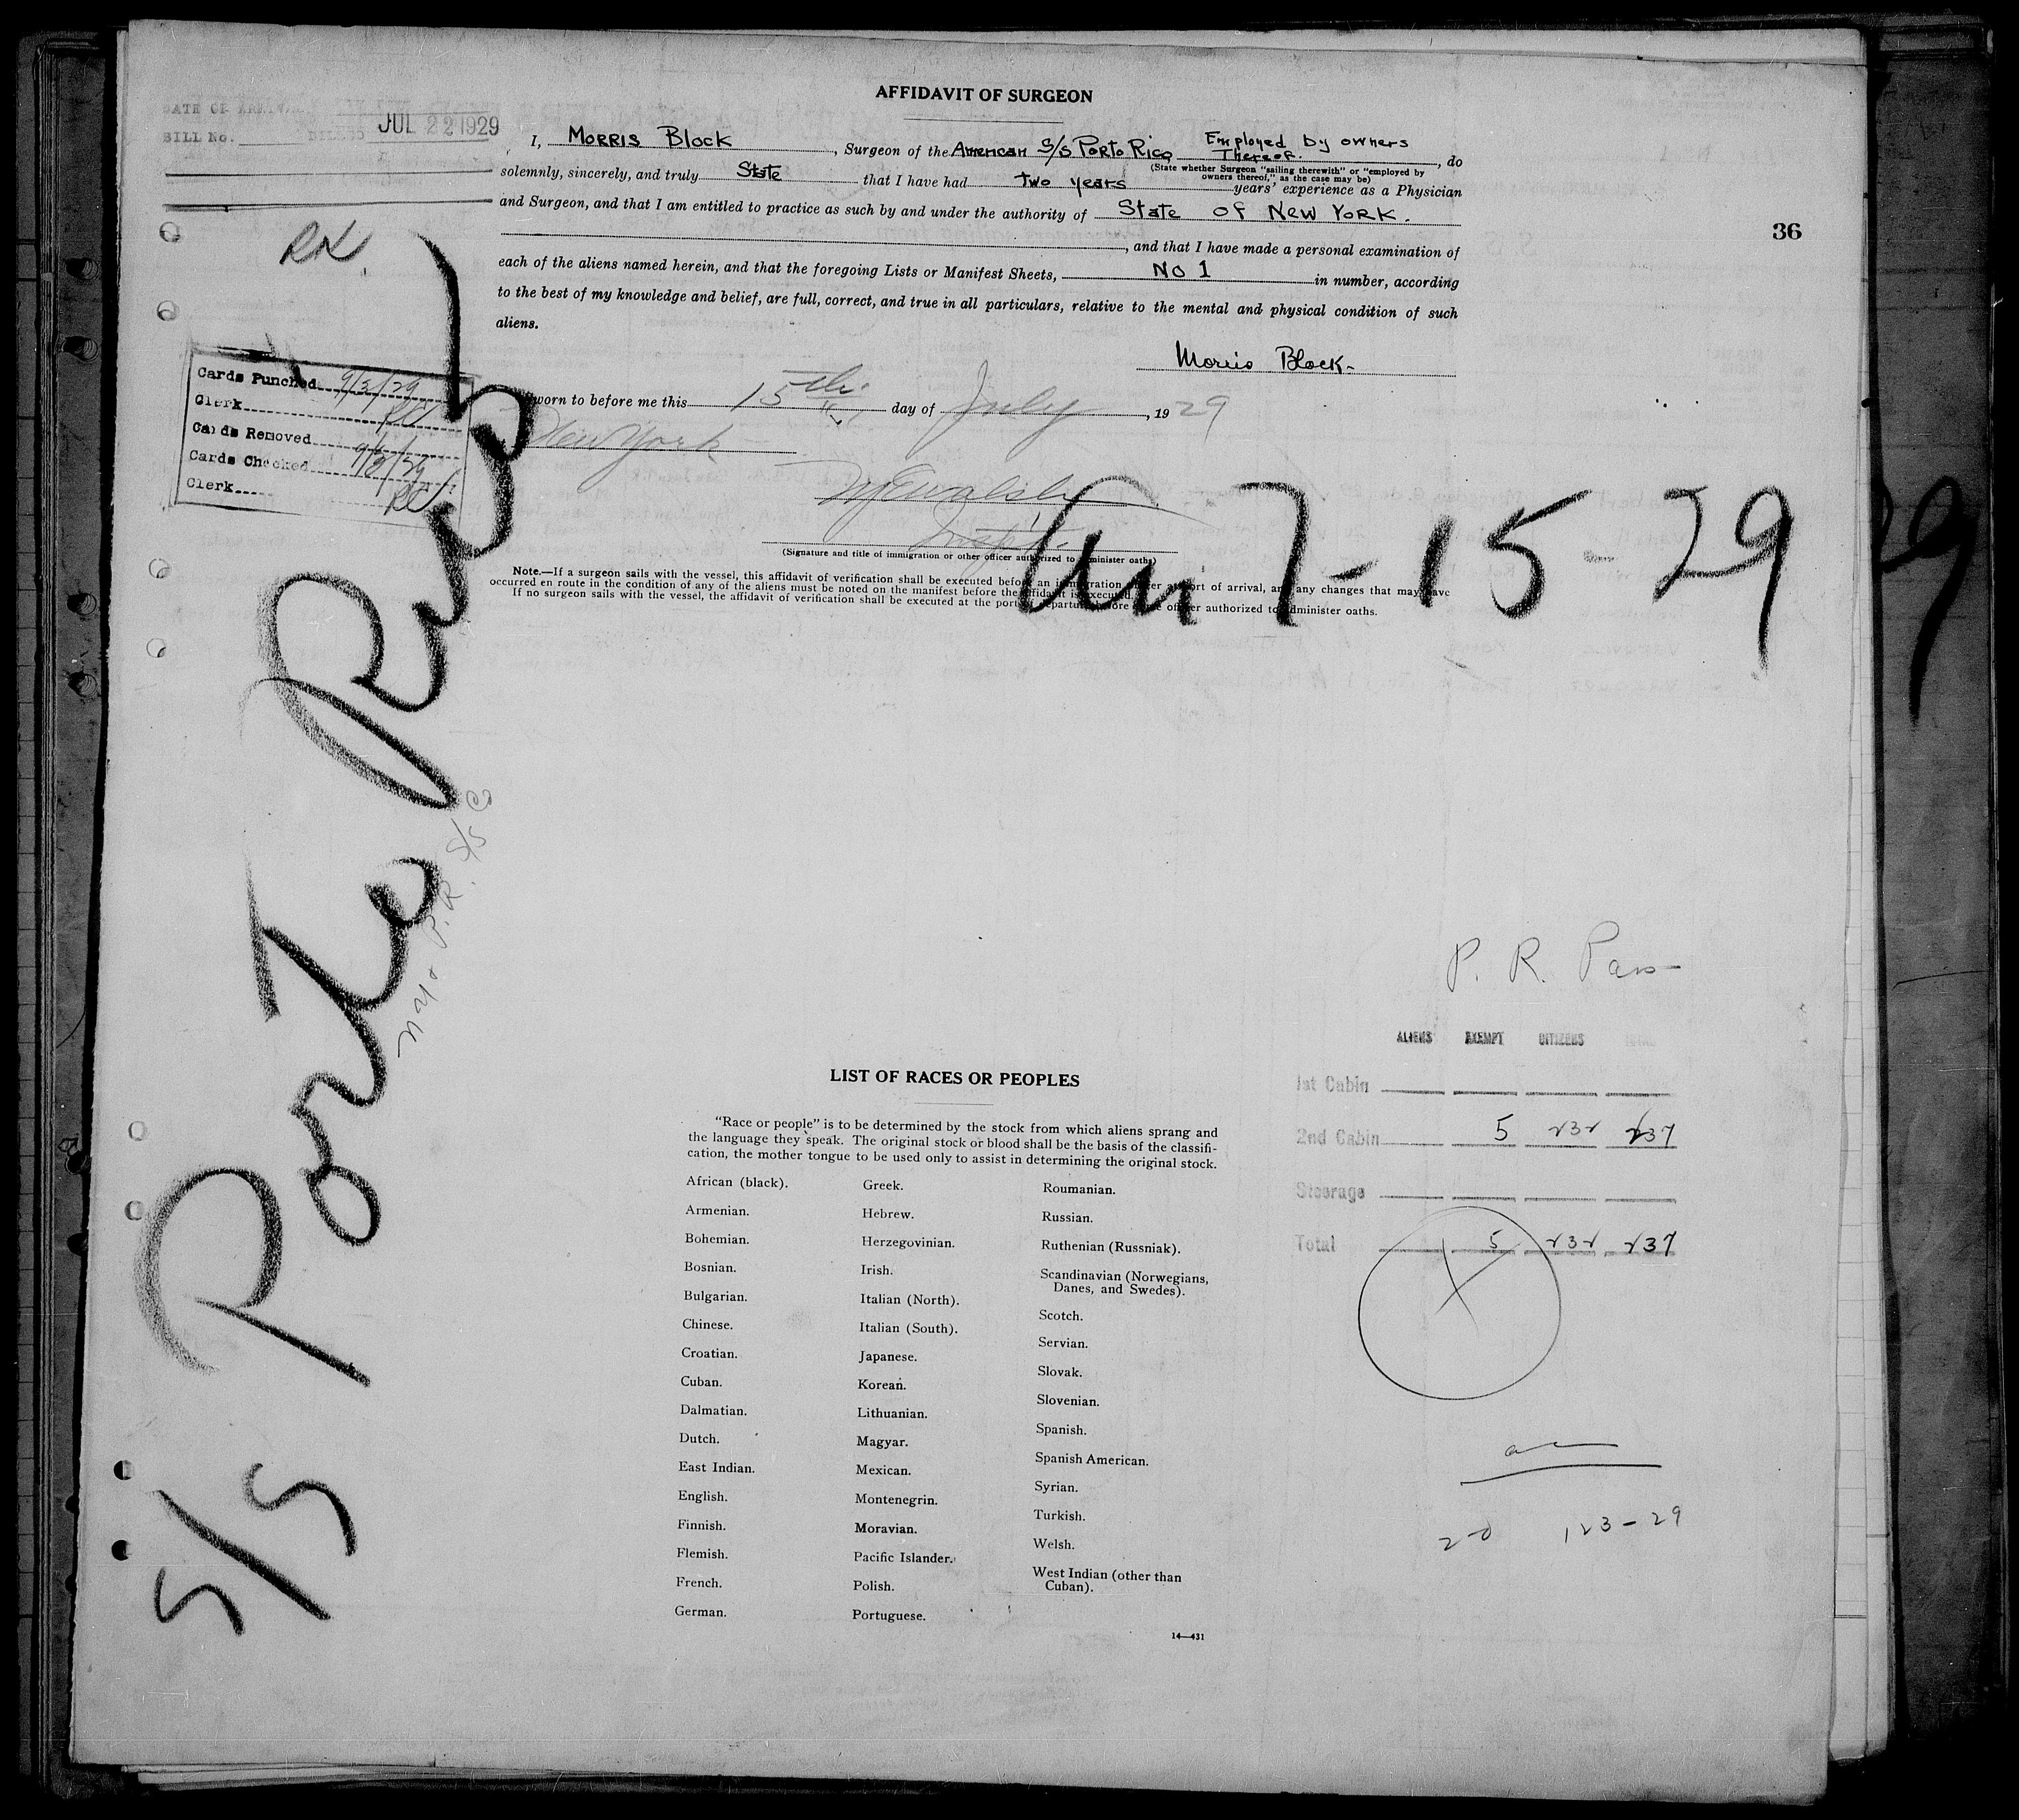 AFFIDAVIT OF SURGEON
DATE OF ARRIVAL
BILL No. BILLED JUL 22 1929
I, MORRIS Block, Surgeon of the American S/S Porto Rico Employed by owners Thereof., do
(State whether Surgeon "sailing therewith" or "employed by
owners thereof," as the case may be)
solemnly, sincerely, and truly State that I have had two years years' experience as a Physician
and Surgeon, and that I am entitled to practice as such by and under the authority of State of New York.
, and that I have made a personal examination of
each of the aliens named herein, and that the foregoing Lists or Manifest Sheets, No 1 in number, according
to the best of my knowledge and belief, are full, correct, and true in all particulars, relative to the mental and physical condition of such
aliens.
36
Morris Block
Cards Punched 9/3/29
Clerk
Cards Removed
Cards Checked
Clerk
Sworn to before me this 15th day of July, 1929
New York
(Signature and title of immigration or other officer authorized to administer oaths)
7-15-29
Note.—If a surgeon sails with the vessel, this affidavit of verification shall be executed before an immigration officer at port of arrival, and any changes that may have
occurred en route in the condition of any of the aliens must be noted on the manifest before the affidavit is executed.
If no surgeon sails with the vessel, the affidavit of verification shall be executed at the port of departure before an officer authorized to administer oaths.
S/S Porto Rico
P. R. Pass
ALIENS EXEMPT CITIZENS TOTAL
1st Cabin
2nd Cabin 5 232 237
Steerage
Total 5 232 237
LIST OF RACES OR PEOPLES
"Race or people" is to be determined by the stock from which aliens sprang and
the language they speak. The original stock or blood shall be the basis of the classifi-
cation, the mother tongue to be used only to assist in determining the original stock.
African (black).
Armenian.
Bohemian.
Bosnian.
Bulgarian.
Chinese.
Croatian.
Cuban.
Dalmatian.
Dutch.
East Indian.
English.
Finnish.
Flemish.
French.
German.
Greek.
Hebrew.
Herzegovinian.
Irish.
Italian (North).
Italian (South).
Japanese.
Korean.
Lithuanian.
Magyar.
Mexican.
Montenegrin.
Moravian.
Pacific Islander.
Polish.
Portuguese.
Roumanian.
Russian.
Ruthenian (Russniak).
Scandinavian (Norwegians,
Danes, and Swedes).
Scotch.
Servian.
Slovak.
Slovenian.
Spanish.
Spanish American.
Syrian.
Turkish.
Welsh.
West Indian (other than
Cuban).
14—431
123-29